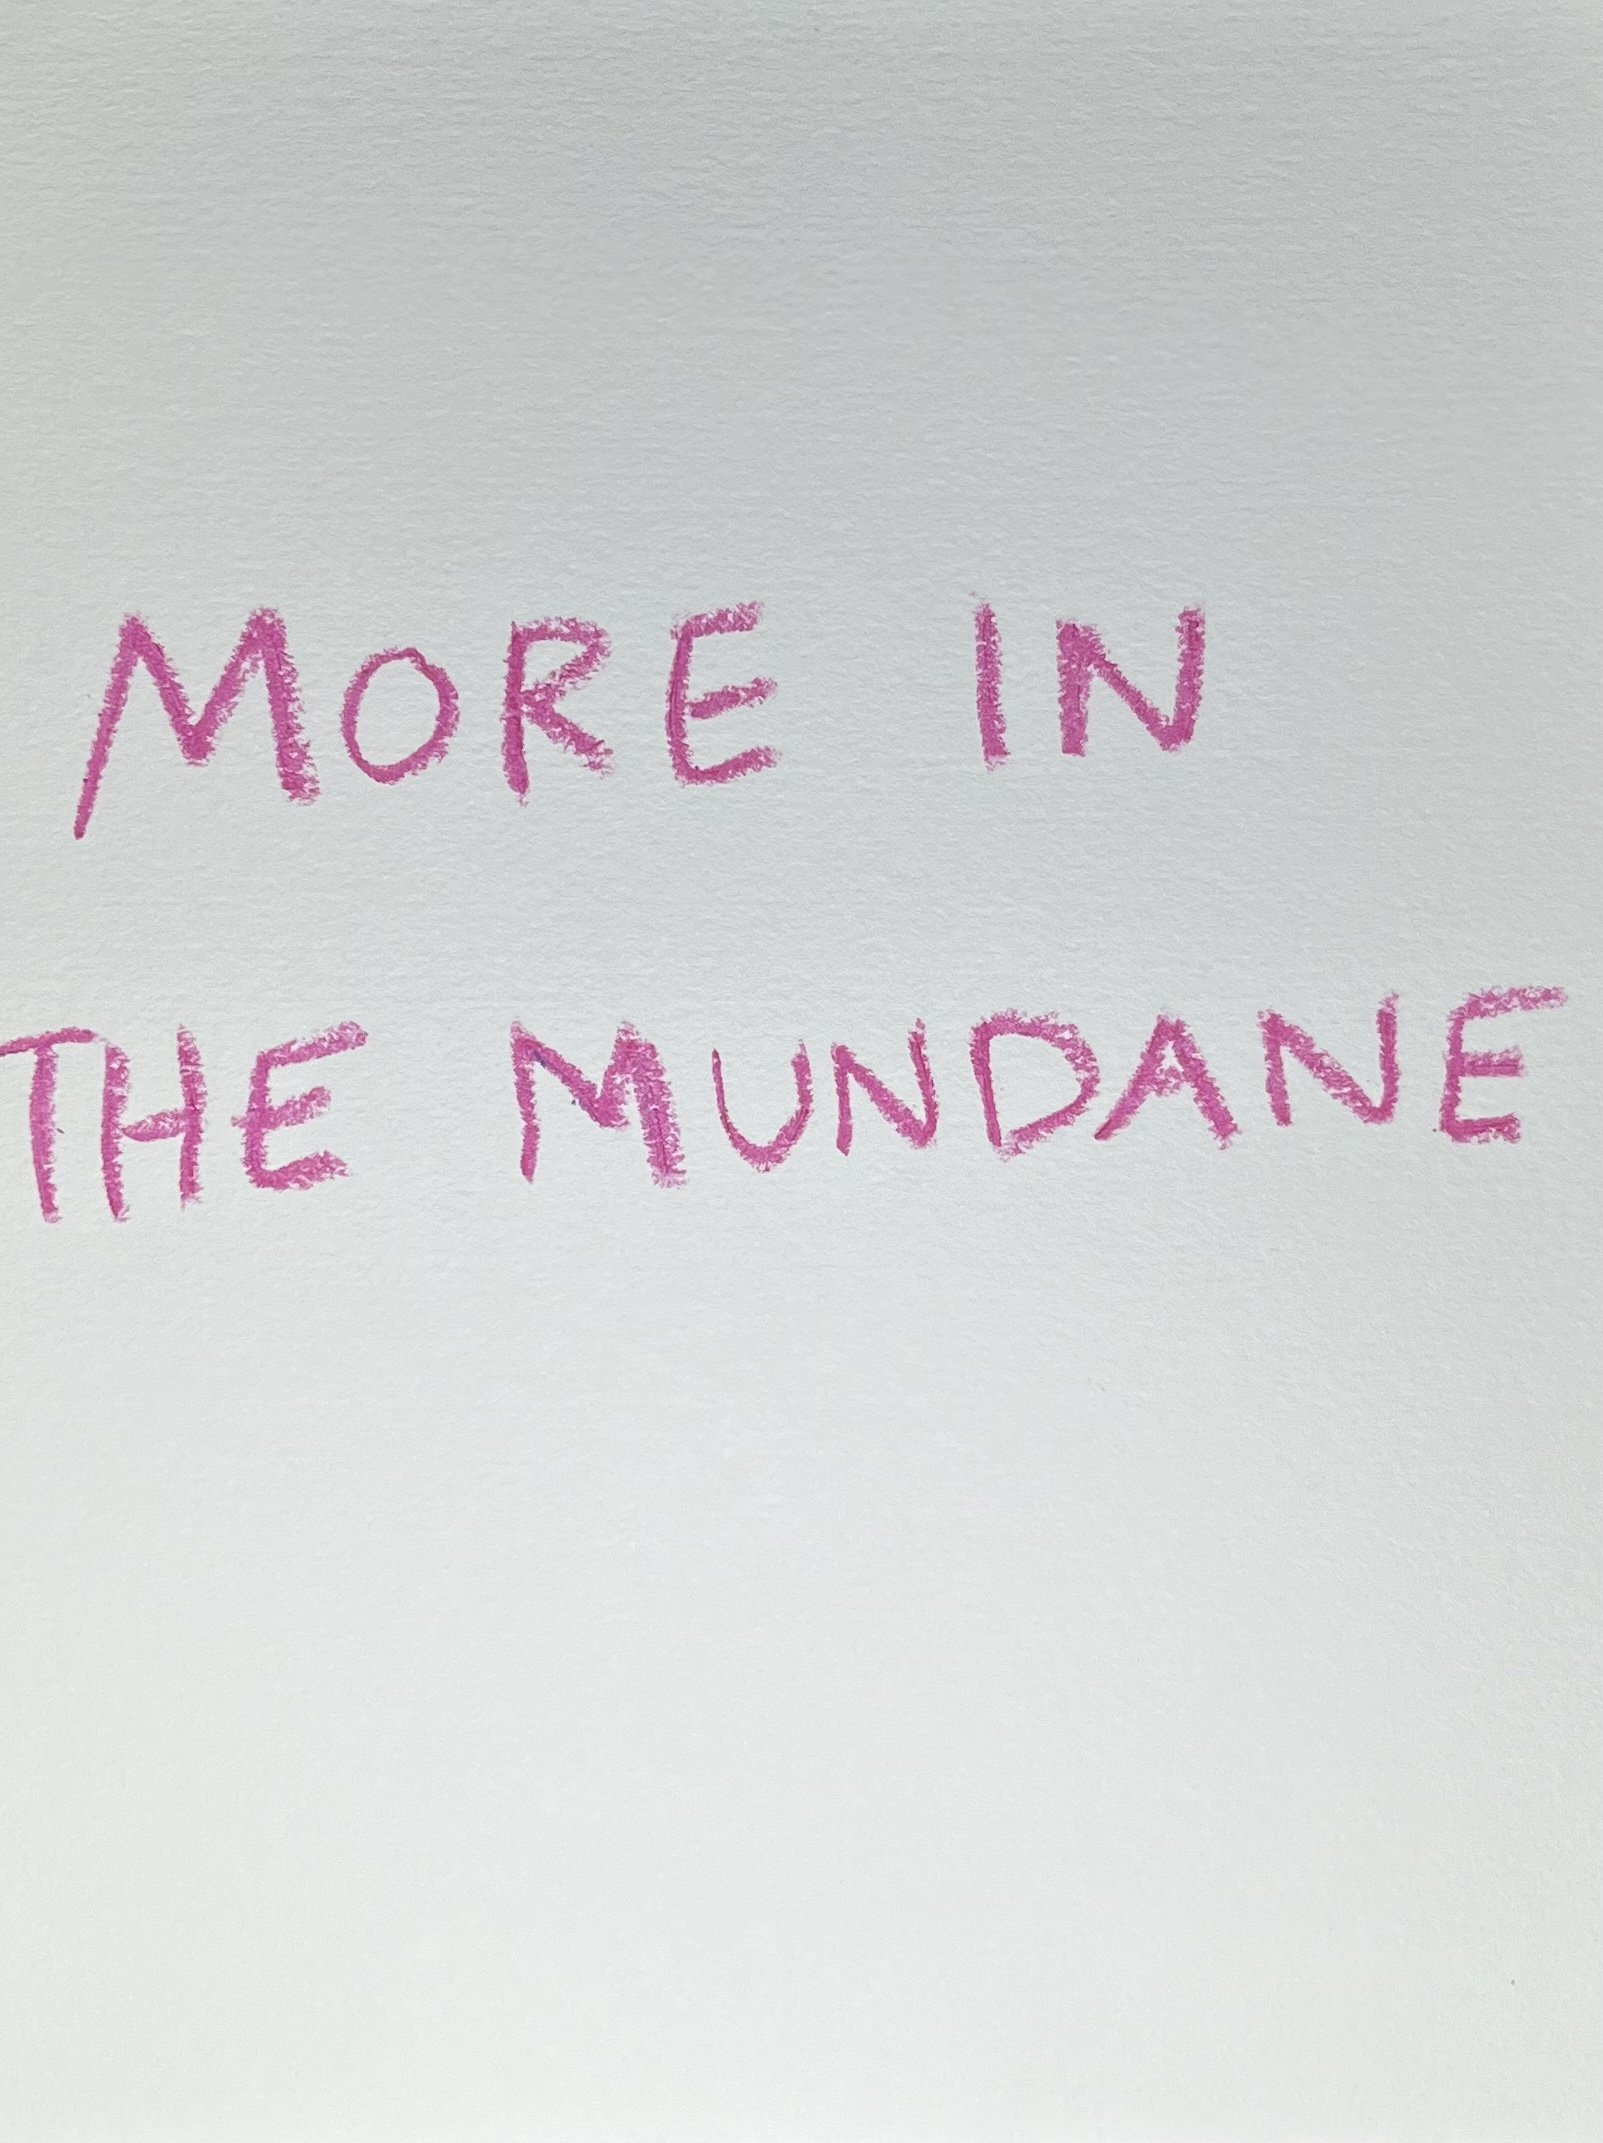 MORE IN
THE MUNDANE